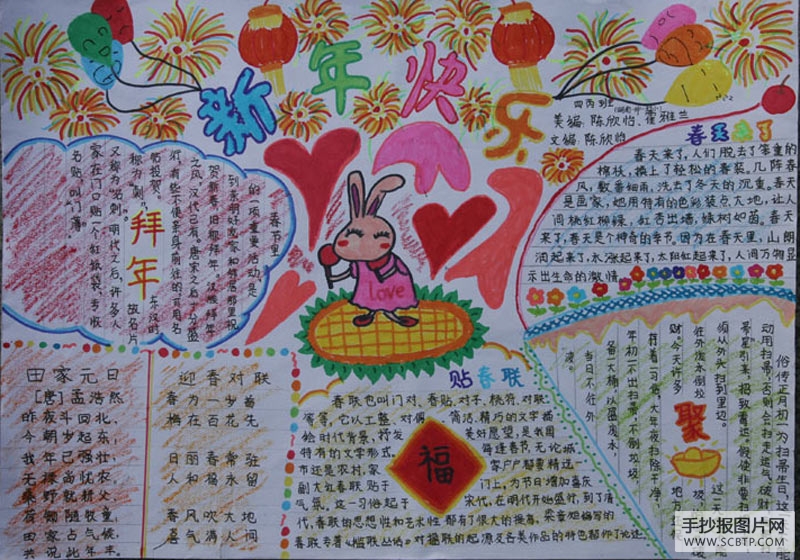 新年快乐
四丙班
美编:陈欣怡 崔雅兰
文编:陈欣怡
春天来了
春天来了,人们脱去了笨重的
棉袄,换上了轻松的春装。几阵春
风,数番细雨,洗去了冬天的沉重。春天
是画家,她用特有的色彩装点大地,让人
间桃红柳绿,红杏出墙,蛛树如茵。春天
来了,春天是个神奇的季节。因为在春天里,山朗
润起来了,水涨起来了,太阳红起来了,人间万物显
示出生命的激情。
拜年
春节里
的一项重要活动,是
到亲朋好友家和邻居那里祝
贺新春,旧称拜年。汉族拜年
之风,汉代已有。唐宋之后十分盛
行,有些不便亲身前往的,可用名
帖投贺。东汉时
称为“刺”,故名片
又称“名刺”。明代之后,许多人
家在门口贴一个红纸袋,专收
名帖,叫门簿。
love
田家元日
[唐]孟浩然
昨夜斗回北,
今朝岁起东;
我年已强壮,
无禄尚忧农。
桑野就耕父,
荷锄随牧童;
田家占气候,
共说此年丰。
迎春对联
春为一岁首
梅在百花先
日丽春常驻
人和福永留
春风吹大地
喜气满人间
贴春联
春联也叫门对、春贴、对子、桃符、对联
等等,它以工整、对偶、简洁、精巧的文字描
绘时代背景,抒发美好愿望,是我国
特有的文学形式。每逢春节,无论城
市还是农村,家家户户都要精选一
副大红春联贴于门上,为节日增加喜庆
气氛。这一习俗起于宋代,在明代开始盛行,到了清
代,春联的思想性和艺术性都有了很大的提高,梁章矩编写的
春联专著《槛联丛话》对楹联的起源及各类作品的特色都作了论述。
福
俗传正月初一为扫帚生日,这
动用扫帚,否则会扫走运气、破财
帚星”引来,招致霉运。假使非要扫
须从外头扫到里边。
聚
手抄报图片网
WWW.SCBTP.COM